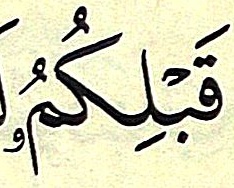 قَبْلِكُمُۥ